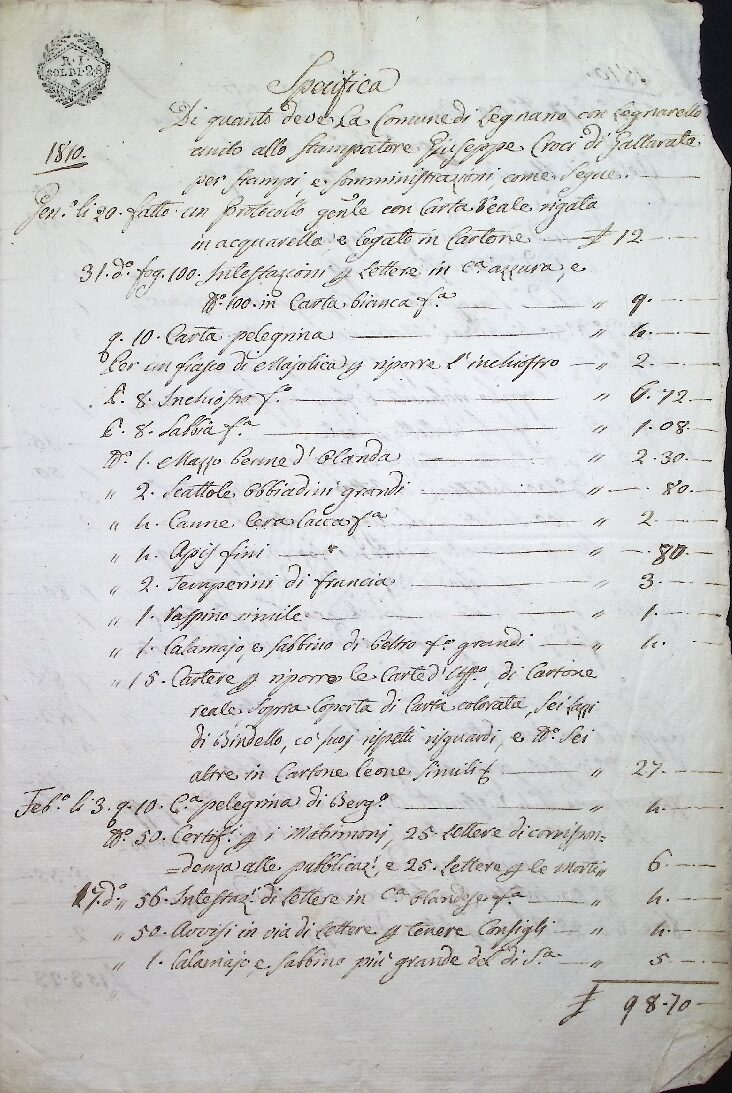 R. I.
SOLDI. 25
Specifica
Di quanto deve La Comune di Legnano con Legnarello
unito allo Stampatore Giuseppe Croci di Gallarate
1810.
per stampi, e somministrazioni come Segue.
Gen.º li 20. fatto un Protocollo gen̅le con Carta reale rigata
in acquarella e legato in Cartone £ 12
31. d.º fog. 100. Intestazioni p Lettere in C.ª azzura, e
N.º 100. in Carta bianca f.ª " 9.
q. 10. Carta pelegrina " 4.
Per un fiasco di Majolica p riporre l'inchiostro " 2.
L. 8. Inchiostro f.º " 6.72
L. 8. Sabbia f.ª " 1.08.
N.º 1. Mazzo penne d'Olanda " 2.30.
" 2. Scattole Obbiadini grandi " 80.
" 4. Canne Cera lacca f.ª " 2.
" 4. Apis fini " .80.
" 2. Temperini di francia " 3.
" 1. Raspino simile " 1.
" 1. Calamajo, e sabbino di Peltro f.º grandi " 4.
" 15. Cartere p riporre le Carte d'Uff.º di Cartone
reale sopra Coperta di Carta colorata, Sei
di Bindello, co' suoi rispetti risguardi, e N.º Sei
altre in Cartone leone simili " 27.
Feb.º li 3. q. 10. C.ª pelegrina di Berg.º " 4.
N.º 50. Certif.i p i Matrimonj, 25. Lettere di corrispon=
=denza alle pubblicaz.i, e 25. Lettere p le Morti " 6.
17. d.º " 56. Intestaz.i di Lettere in C.ª Olandese f.ª " 4.
" 50. Avvisi in via di Lettere p tenere Consigli " 4.
" 1. Calamajo e Sabbino più grande del di S.ª " 5
£ 98.70